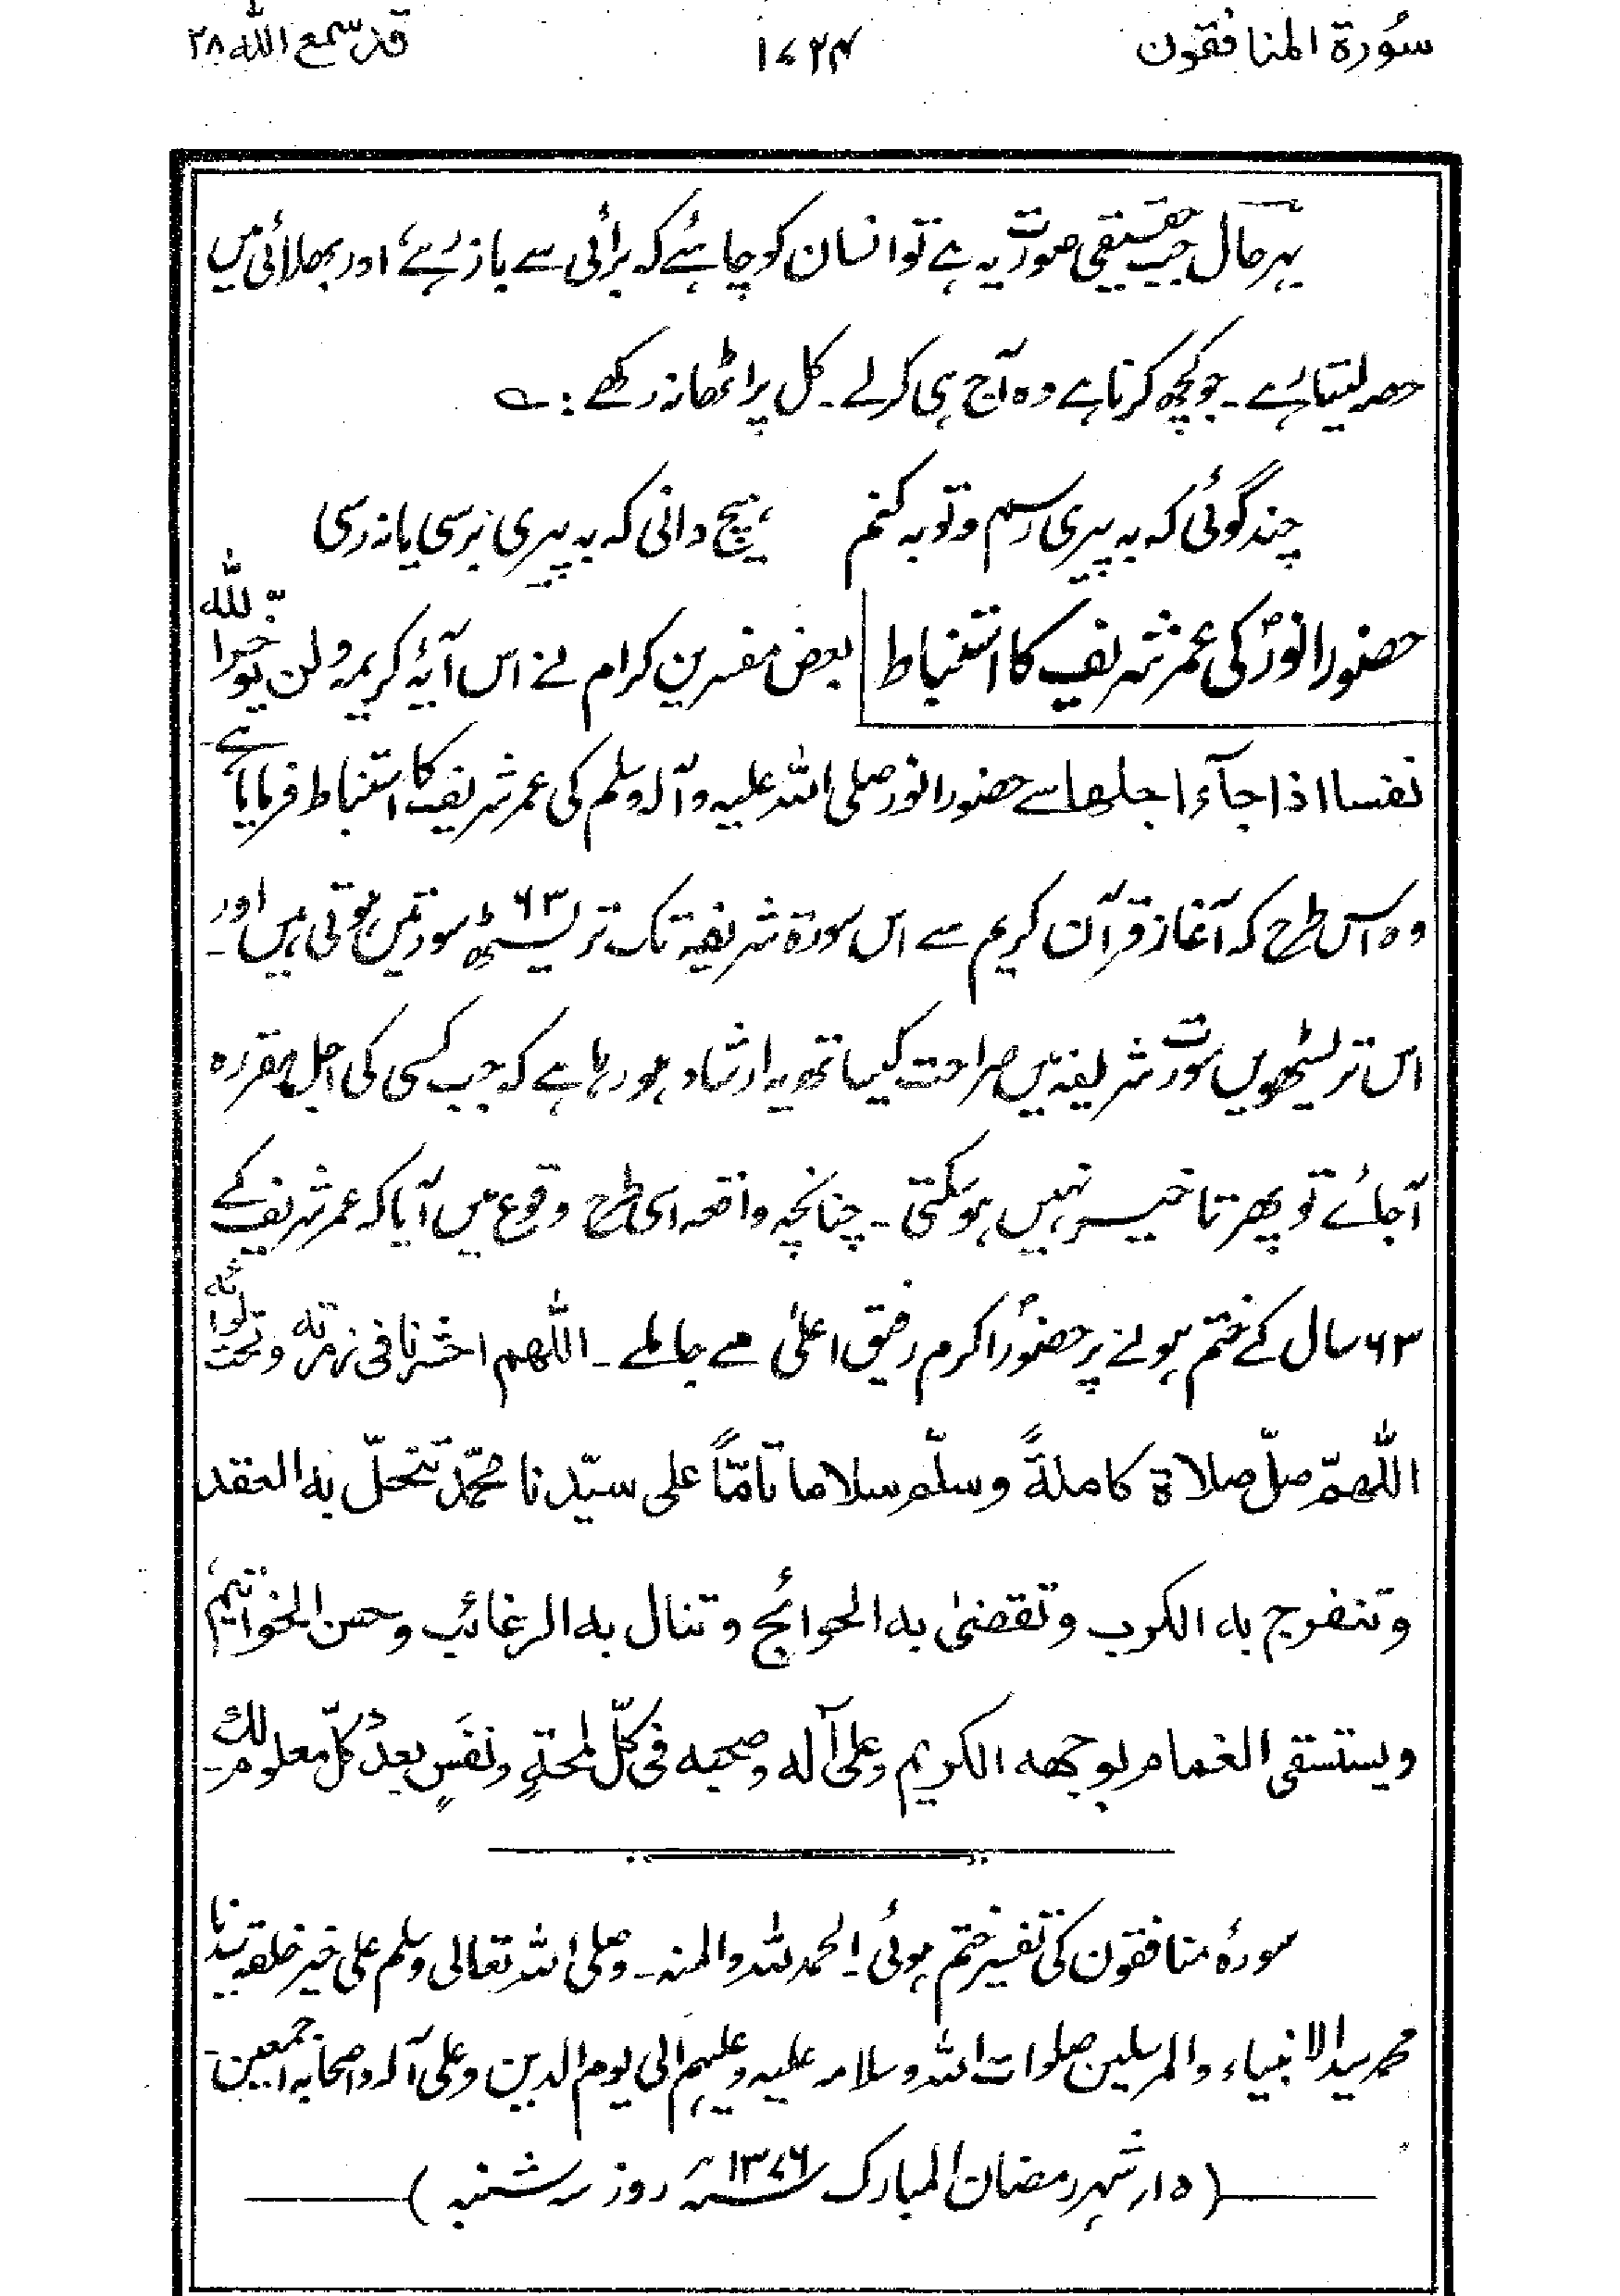 سُورة المنافقون
۱۷۲۴
قد سمع الله ۲۸
بہرحال جب حقیقی صورت یہ ہے تو انسان کو چاہئے کہ برائی سے باز رہے، اور بھلائی میں
حصہ لیتا رہے ۔ جو کچھ کرنا ہے وہ آج ہی کرلے ۔ کل پر اٹھا نہ رکھے :۔
چند گوئی کہ بہ پیری رسم و توبہ کنم ہیچ دانی کہ بہ پیری برسی یا نہ رسی
حضور انورؐ کی عمر شریف کا استنباط بعض مفسرین کرام نے اس آیۂ کریمہ ولن یؤخّر اللہ
نفسا اذا جآء اجلھا سے حضور انور صلی اللہ علیہ وآلہ وسلم کی عمر شریف کا استنباط فرمایا ہے
وہ اس طرح کہ آغاز قرآن کریم سے اس سورۃ شریفۃ تک ترلیسٹھ ۶۳ سورتیں ہوتی ہیں اور ۔
اس ترلیسٹھویں سورت شریفۃ میں صراحت کیساتھ یہ ارشاد ہو رہا ہے کہ جب کسی کی اجل مقررہ
آجائے تو پھر تاخیر نہیں ہوسکتی ۔ چنانچہ واقعہ اسی طرح وقوع میں آیا کہ عمر شریف کے
۶۳ سال کے ختم ہونے پر حضورؐ اکرم رفیق اعلیٰ سے جا ملے ۔ اللھم احشرنا فی زمرتہ وتحت لوائہ
اللّٰھمّ صلّ صلاة کاملةً وسلّم سلاما تامّاً علی سیّدنا محمّد تنحلّ به العقد
وتنفرج به الکرب وتقضیٰ به الحوائج وتنال به الرغائب وحسن الخواتیم
ویستسقی الغمام بوجهه الکریم وعلی آله وصحبه فی کلّ لمحةٍ ونفَسٍ بعدد کلّ معلوم لك ۔
سورۂ منافقون کی تفسیر ختم ہوئی ۔ الحمد للہ والمنہ ۔ وصلی اللہ تعالی وسلم علی خیر خلقہ سیدنا
محمد سید الانبیاء والمرسلین صلوات اللہ وسلامہ علیہ وعلیہم الی یوم الدین وعلی آلہ واصحابہ اجمعین ۔
(۱۵ر شہر رمضان المبارک ۱۳۷۶ سنہ ھ روز سہ شنبہ)